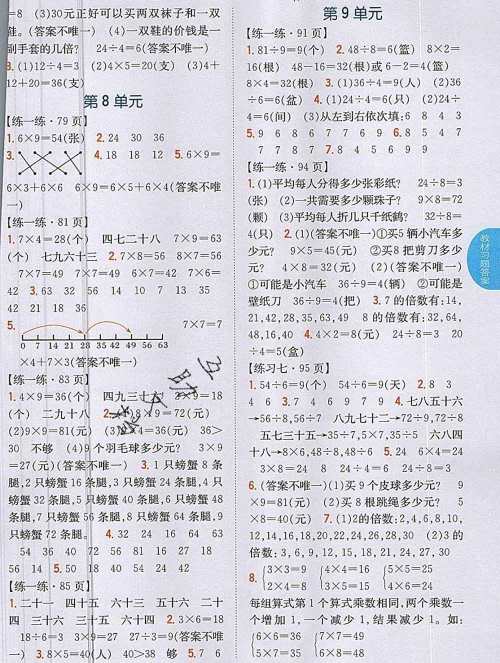 =8 (3)30元正好可以买两双袜子和一双
鞋。(答案不唯一) (4)一双鞋的价钱是一
副手套的几倍? 24÷4=6(答案不唯一)
3.(1)12÷4=3 (2)4×5=20(支) (3)4+
12+20=36(支)
第8单元
【练一练·79页】
1.6×9=54(张) 2.24 30 36
3. 4.18 18 12 5.6×9=
6×3+6×6 6×9=6×5+6×4(答案不唯
一)
【练一练·81页】
1.7×4=28(个) 四七二十八 7×9=63
(个) 七九六十三 2.7×8=56 8×7=56
7×7=49 7×7=49 6×7=42 7×6=
42 3.63 32 56 14 10 7 13 35
42 21 49 36
5. 7×7=7
0 7 14 21 28 35 42 49 56 63
×4+7×3(答案不唯一)
【练一练·83页】
1.4×9=36(个) 四九三十六 2×9=18
(个) 二九十八 2. 8×9=72(元)
(2)9×9=81(元) (3) ×4=36(元) 36>
30 不够 (4)9个羽毛球多少元? 3×9
=27(元)(答案不唯一) 3.1只螃蟹8条
腿,2只螃蟹16条腿,3只螃蟹24条腿,4只
螃蟹32条腿,5只螃蟹40条腿,6只螃蟹48
条腿,7只螃蟹56条腿,8只螃蟹64条腿,9
只螃蟹72条腿。 4.32 24 16 64 63
54 36 40 72 56 81 16 27 18
56 14 5.50 18 40 54 24 42
【练一练·85页】
1.二十一 四十五 六十三 五十六 二十
四 三十六 三十五 六十四 2.3×6=18
18÷6=3 3×9=27 27÷3=9(答案不唯
一) 3.8×5=40(人) 40>38 够 5.7 6
第9单元
【练一练·91页】
1.81÷9=9(个) 2.48÷8=6(篮) 8×2=
16(根) 48-16=32(根)或6-2=4(篮)
8×4=32(根) 3.(1)36÷4=9(人) (2)36
÷6=6(盆) 4.(1)24÷4=6(只) (2)24÷
4=6(间) (3)从左到右依次填:6 8 4 3
5.9 6 8 6 7 7 6 9 6.8 5 4 7
7 7 8 7 7 9 8 6 5 9
【练一练·94页】
1.(1)平均每人分得多少张彩纸? 24÷8=3
(张) (2)一共需要多少颗珠子? 9×8=72
(颗) (3)平均每人折几只千纸鹤? 32÷8=
4(只) 2.(1)(答案不唯一)①买5辆小汽车多
少元? 9×5=45(元) ②买8把剪刀多少
元? 4×8=32(元) (2)(答案不唯一)
①可能是小汽车 36÷9=4(辆) ②可能是
壁纸刀 36÷9=4(把) 3.7的倍数有:14,
21,42,28,35,63,49 8的倍数有:32,64,
48,16,40 4.4×2=8(元) 24÷8=3 20
÷4=5(盒)
【练习七·95页】
1.54÷6=9(个) 54÷6=9(天) 2.8 3
4 6 3.7 4 6 9 7 9 4.七八五十六
→56÷8,56÷7 八九七十二→72÷9,72÷8
五七三十五→35÷7,5×7,35÷5 六八四
十八→8×6,48÷8,48÷6 5.24 6×4=24
3×8=24 8 24÷4=6 24÷8=3
6.(答案不唯一)(1)买9个皮球多少元? 9
×9=81(元) (2)买8根跳绳多少元? 5
×8=40(元) 7.(1)2的倍数:2,4,6,8,10,
12,14,16,18,20,22,24,26,28,30 (2)3的
倍数:3,6,9,12,15,18,21,24,27,30
8. 3×3=9 4×4=16 5×5=25
2×4=8 3×5=15 4×6=24
每组算式第1个算式乘数相同,两个乘数一
个增加1,一个减少1,结果减少1。如:
6×6=36 7×7=49
5×7=35 6×8=48
教材习题答案
互助文答